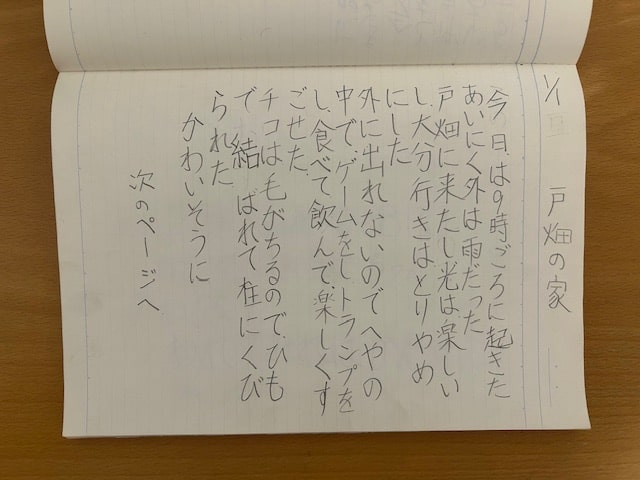 1/1 戸畑の家
今日は9時ごろに起きた
あいにく外は雨だった
戸畑に来たし光は楽しい
し、大分行きはとりやめ
にした
外に出れないのでへやの
中で、ゲームをし、トランプを
し、食べて飲んで、楽しくす
ごせた
チコは毛がちるので、ひも
で 結ばれて柱にくび
られた
かわいそうに
次のページへ